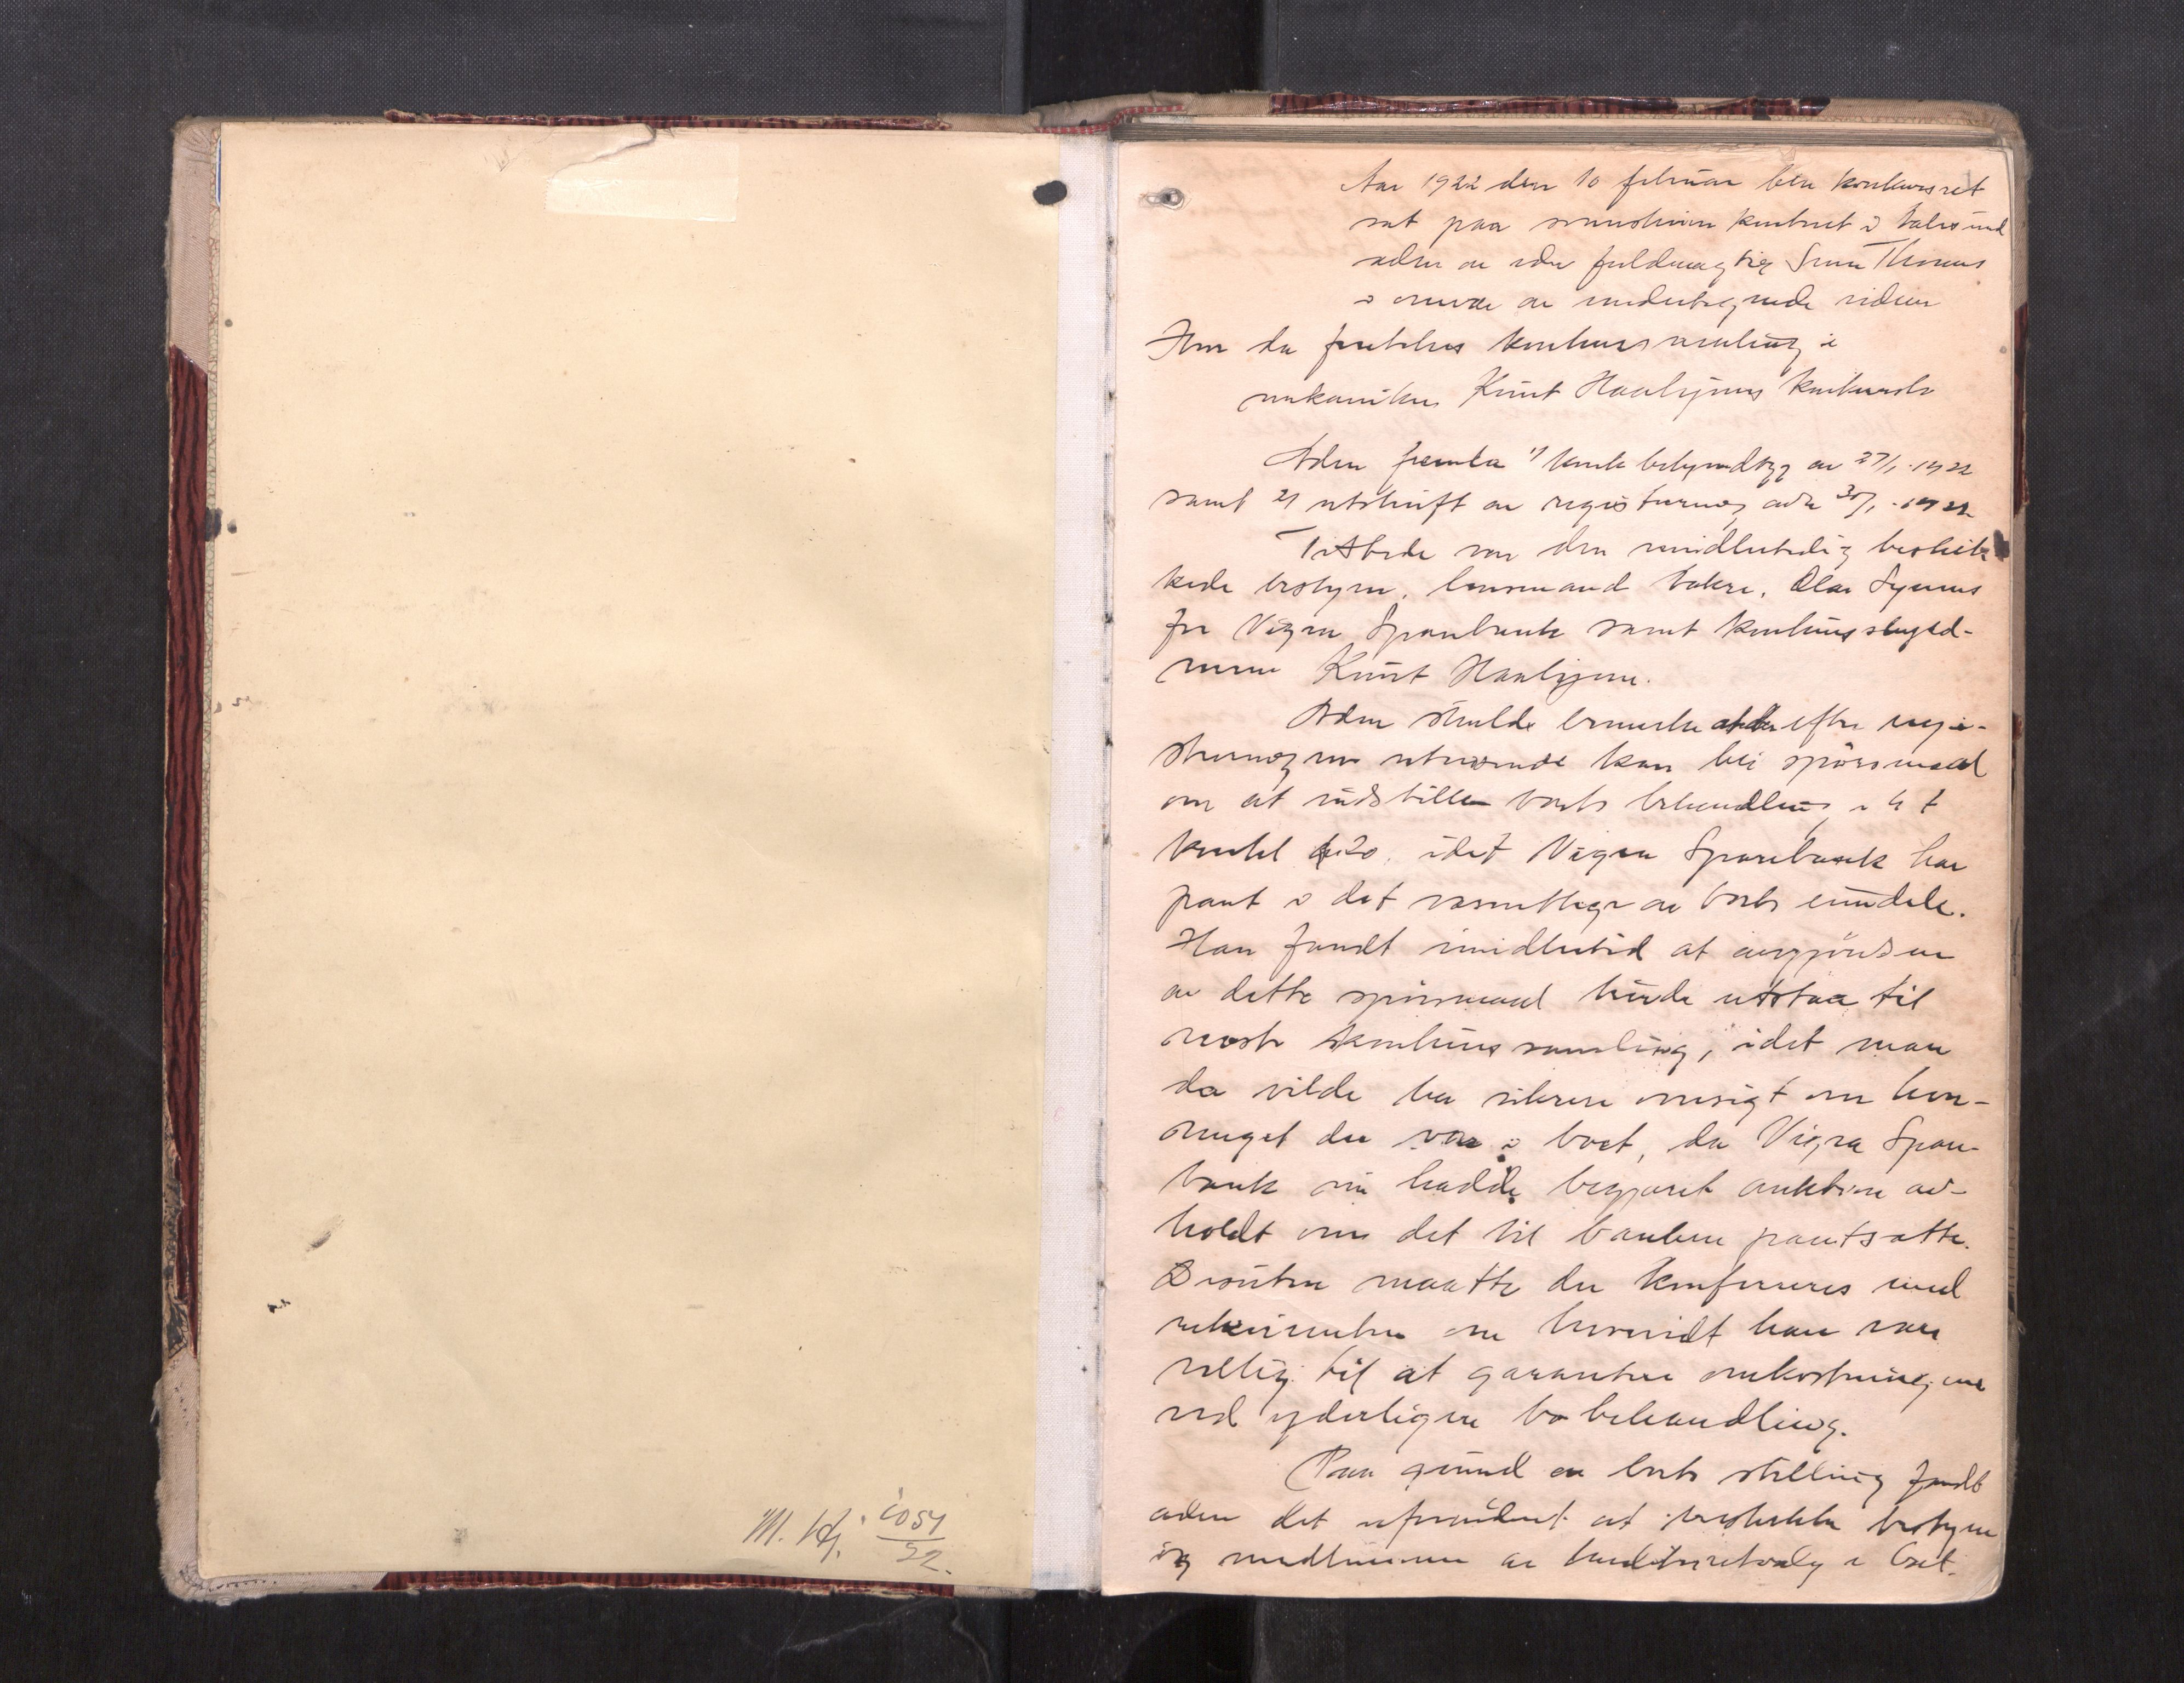 Aar 1922 den 10 februar blev konkursret
sat paa sorenskriverkontoret i Aalesund
adm av edsv fuldmægtig Thomas
i overvær av undertegnede vidner
Hvor da foretokes konkurssamling i
mekaniker Knut Haahjems konkursbo
Adm fremla 1/ konk bekjendtgj av 27/1-1922
samt 2/ utskrift av registrering avh 30/1-1922
Tilstede var den midlertidig beskik-
kede bestyrer, lensmand Olav Synnes
for Vigra Sparebank samt konkursskyld-
neren Knut Haahjem.
Adm skulde bemerke at der efter regi-
streringens utvisende kan bli spørsmaal
om at indstille boets behandling i h t
konkl § 20, idet Vigra Sparebank har
pant i det væsentligste av boets eiendele.
Han fandt imidlertid at avgjørelsen
av dette spørsmaal burde utstaa til
næste konkurssamling, idet man
da vilde ha sikrere oversigt om hvor-
meget der var i boet, da Vigra Spare-
bank nu hadde begjæret auktion av-
holdt over det til banken pantsatte.
Desuten maatte der konfereres med
rekvirenten om hvorvidt han var
villig til at garantere omkostningene
ved yderligere bobehandling.
Paa grund av boets stilling fandt
adm det ufornødent at beskikke bestyrer
og medlemmer av kreditorutvalg i boet.
M. Kj. 1051/22.